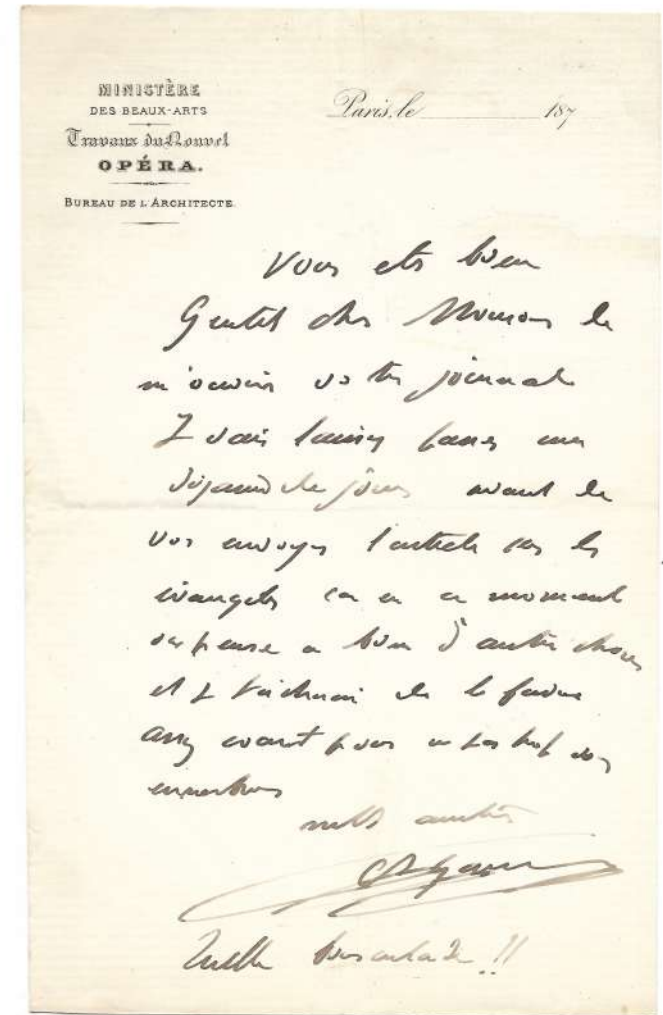 MINISTÈRE
DES BEAUX-ARTS
Travaux du Nouvel
OPÉRA.
BUREAU DE L'ARCHITECTE
Paris, le 187
Vous etes bien
Gentil cher de
m'ouvrir votre journal
Je vais laisser passer une
de jours avant de
vos envoyer l'article sur les
evangiles car en ce moment
on pense a bien d'autres choses
et je tacherai de le faire
assez court pour ne pas trop vous
mille amitiés
Ch Garnier
Quelle !!